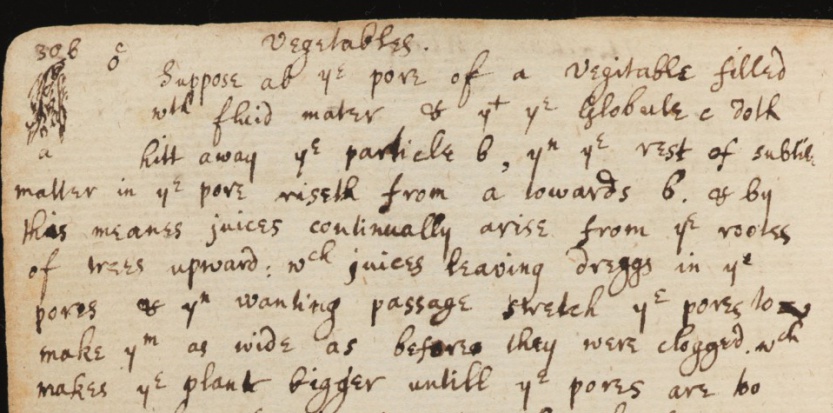 Vegetables.
306 c
Suppose ab yᵉ pore of a Vegitable filled
wᵗʰ fluid mater & yᵗ yᵉ Globule c doth
a hitt away yᵉ particle b, yⁿ yᵉ rest of subtile
matter in yᵉ pore riseth from a towards b. & by
this meanes juices continually arise from yᵉ rootes
of trees upward: wᶜʰ juices leaving dreggs in yᵉ
pores & yⁿ wanting passage stretch yᵉ pores to
make yᵐ as wide as before they were clogged. wᶜʰ
makes yᵉ plant bigger untill yᵉ pores are too